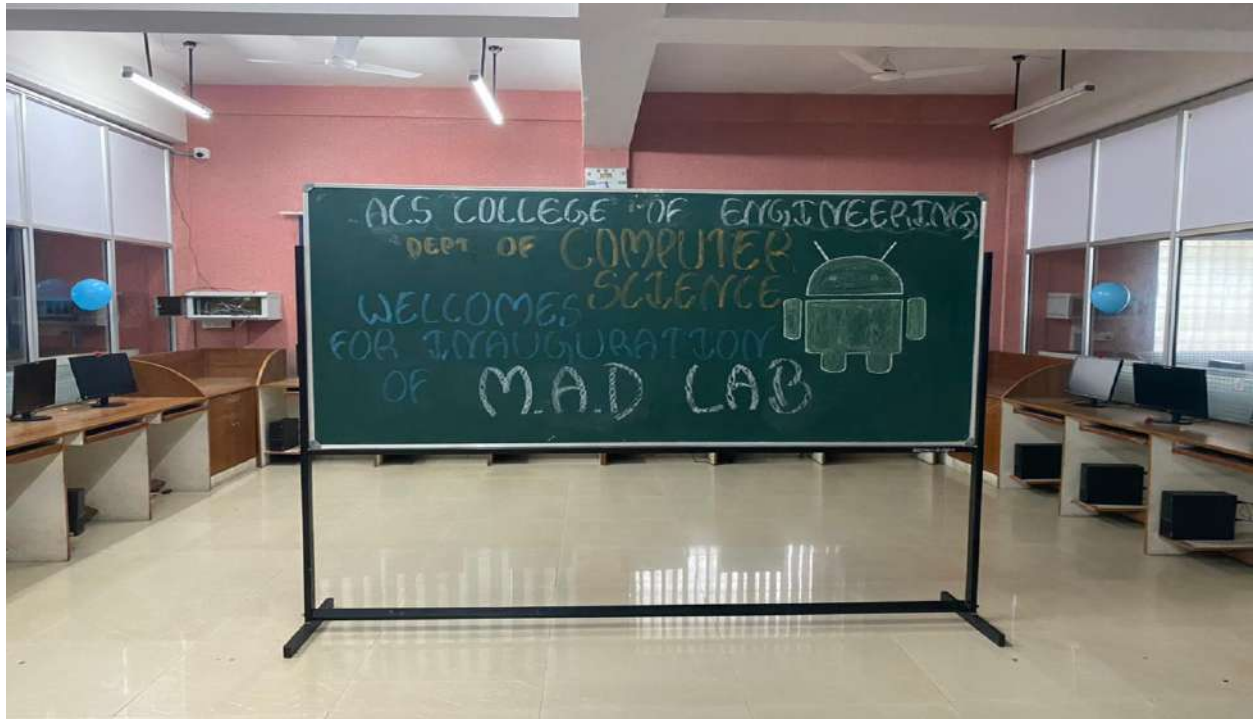 ACS COLLEGE OF ENGINEERING
DEPT OF COMPUTER
SCIENCE
WELCOMES
FOR INAUGURATION
OF M.A.D LAB